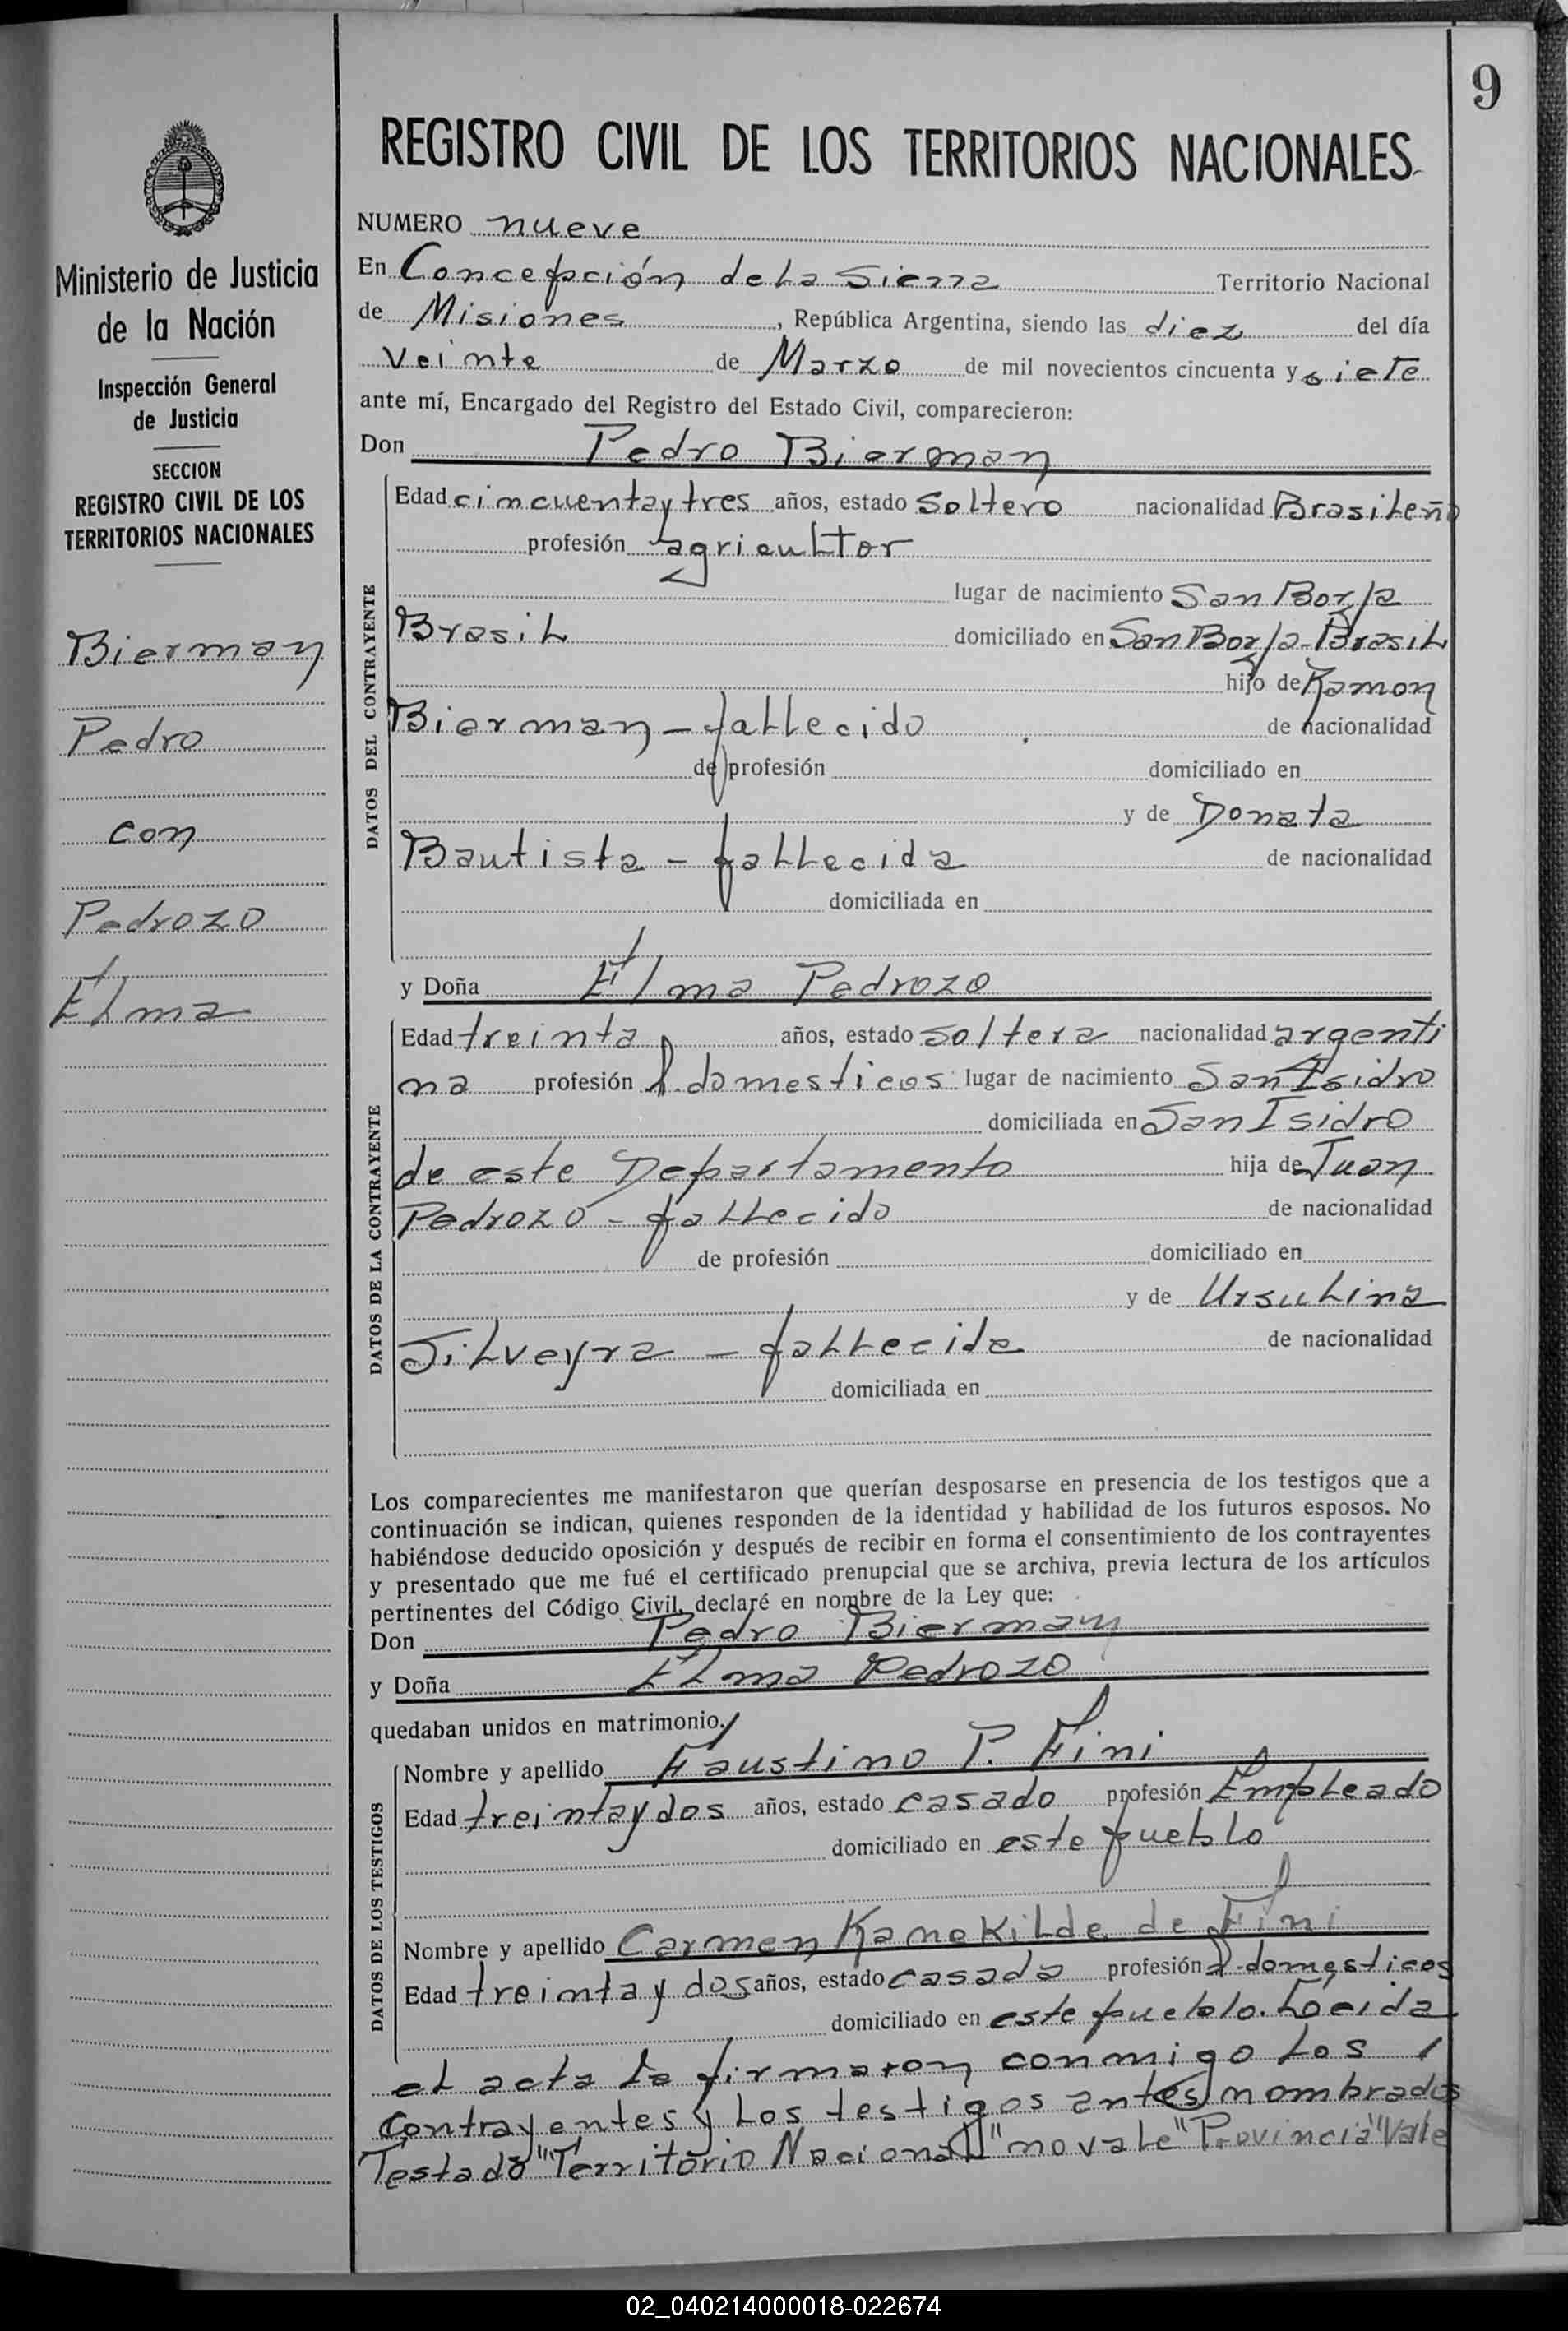 9
REGISTRO CIVIL DE LOS TERRITORIOS NACIONALES
Ministerio de Justicia
de la Nación
Inspección General
de Justicia
SECCION
REGISTRO CIVIL DE LOS
TERRITORIOS NACIONALES
Bierman
Pedro
con
Pedrozo
Elma
NUMERO nueve
En Concepción de La Sierra Territorio Nacional
de Misiones, República Argentina, siendo las diez del día
Veinte de Marzo de mil novecientos cincuenta y siete
ante mí, Encargado del Registro del Estado Civil, comparecieron:
Don Pedro Bierman
DATOS DEL CONTRAYENTE
Edad cincuenta y tres años, estado Soltero nacionalidad Brasileño
profesión agricultor
lugar de nacimiento San Borja
Brasil domiciliado en San Borja-Brasil
hijo de Ramon
Bierman - fallecido de nacionalidad
de profesión domiciliado en
y de Donata
Bautista - fallecida de nacionalidad
domiciliada en
y Doña Elma Pedrozo
DATOS DE LA CONTRAYENTE
Edad treinta años, estado soltera nacionalidad argenti
na profesión q. domesticos lugar de nacimiento San Isidro
domiciliada en San Isidro
de este Departamento hija de Juan
Pedrozo - fallecido de nacionalidad
de profesión domiciliado en
y de Ursulina
Silveyra - fallecida de nacionalidad
domiciliada en
Los comparecientes me manifestaron que querían desposarse en presencia de los testigos que a
continuación se indican, quienes responden de la identidad y habilidad de los futuros esposos. No
habiéndose deducido oposición y después de recibir en forma el consentimiento de los contrayentes
y presentado que me fué el certificado prenupcial que se archiva, previa lectura de los artículos
pertinentes del Código Civil, declaré en nombre de la Ley que:
Don Pedro Bierman
y Doña Elma Pedrozo
quedaban unidos en matrimonio.
DATOS DE LOS TESTIGOS
Nombre y apellido Faustino P. Fini
Edad treinta y dos años, estado casado profesión Empleado
domiciliado en este pueblo
Nombre y apellido Carmen de Fini
Edad treinta y dos años, estado casada profesión q. domesticos
domiciliado en este pueblo. Loeida
el acta la firmaron conmigo los
contrayentes y los testigos antes nombrados
Testado "Territorio Nacional" no vale "Provincia" Vale
02_040214000018-022674